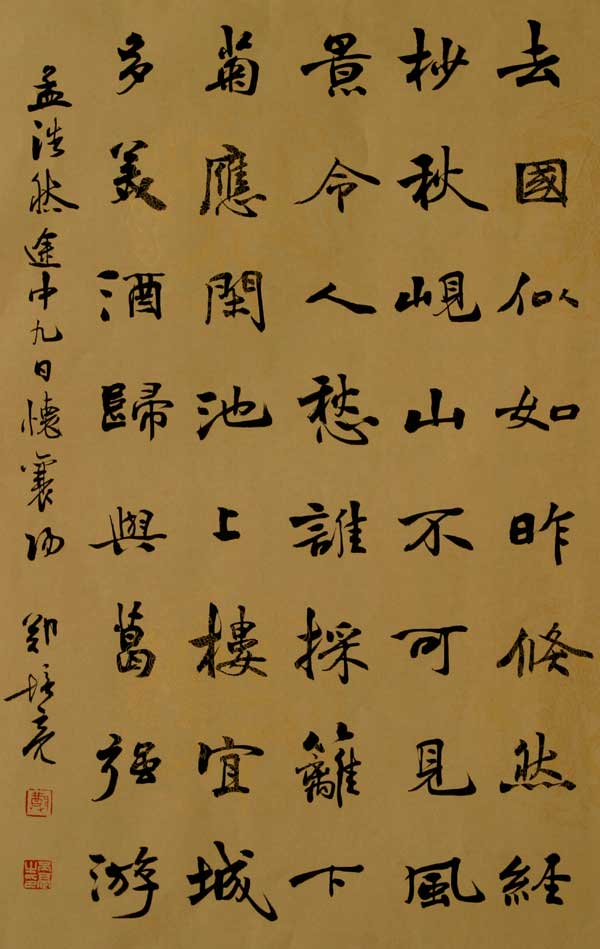 去國似如昨倏然經
杪秋峴山不可見風
景令人愁誰採籬下
菊應閑池上樓宜城
多美酒歸與葛強游
孟浩然途中九日懷襄陽 鄭培亮
鄭